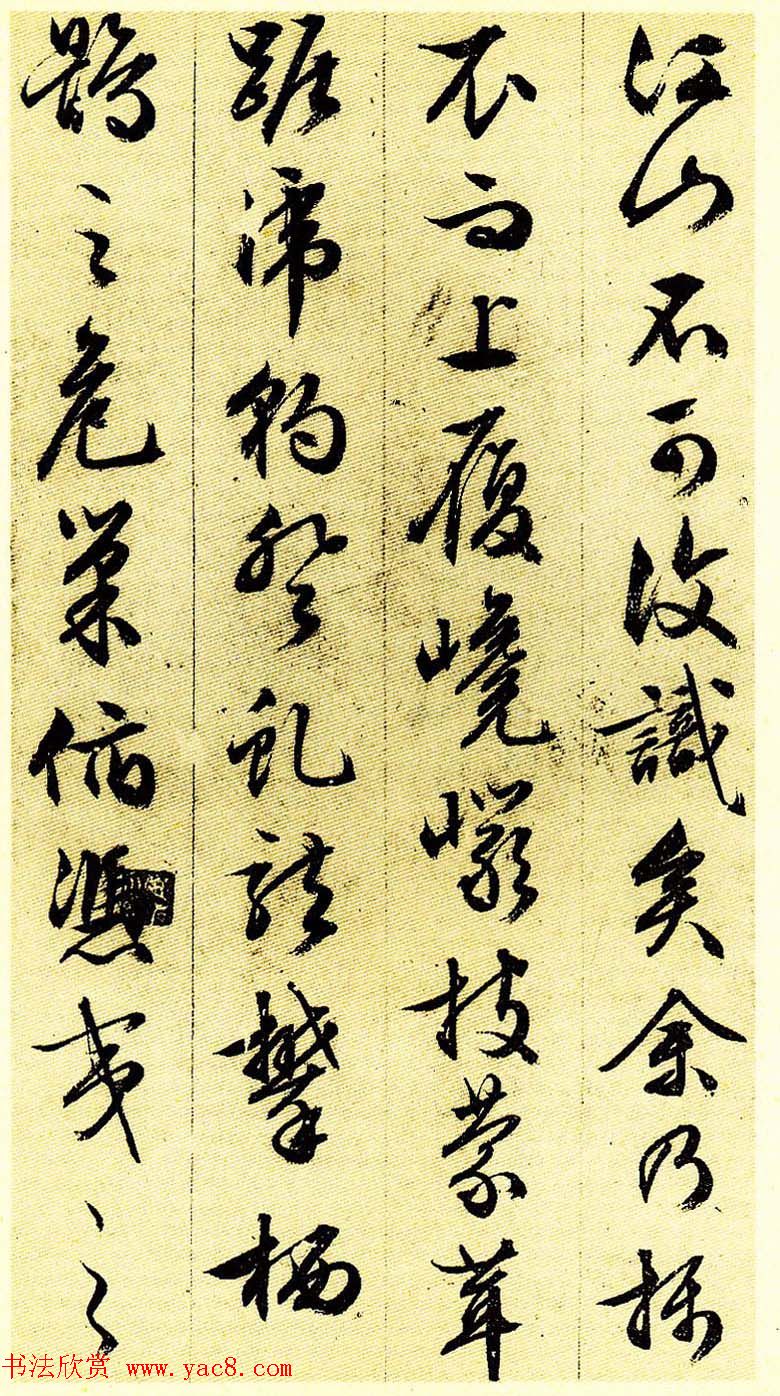 江山不可復識矣余乃攝
衣而上履巉巖披蒙茸
踞虎豹登虬龍攀栖
鶻之危巢俯憑夷之
书法欣赏 www.yac8.com